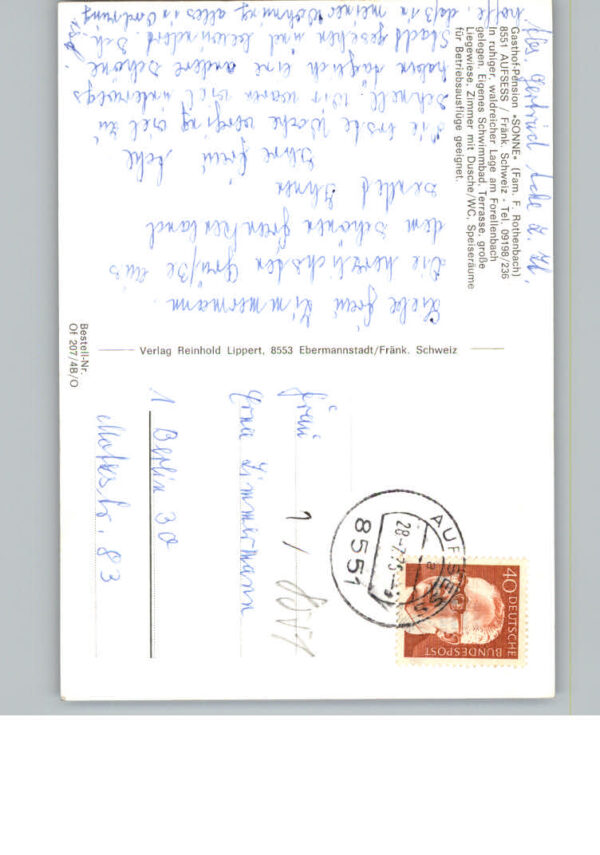 Gasthof-Pension «SONNE» (Fam. F. Rothenbach)
8551 AUFSESS / Fränk. Schweiz - Tel. 09198/236
In ruhiger, waldreicher Lage am Forellenbach
gelegen. Eigenes Schwimmbad, Terrasse, große
Liegewiese, Zimmer mit Dusche/WC, Speiseräume
für Betriebsausflüge geeignet.
Liebe Frau Zimmermann.
Die herzlichsten Grüße aus
dem schönen Frankenland
sendet Ihnen
Ihre Frau
Die erste Woche verging viel zu
schnell. Wir waren viel unterwegs
haben täglich eine andere schöne
Stadt gesehen und bewundert. Ich
hoffe, daß in meiner Wohnung alles in Ordnung
ist.
Verlag Reinhold Lippert, 8553 Ebermannstadt/Fränk. Schweiz
Bestell-Nr.
Of 207/4B/O
AUFSESS
28.-7.75
a
8551
40 DEUTSCHE
BUNDESPOST
Frau
Erna Zimmermann
1 Berlin 30
83